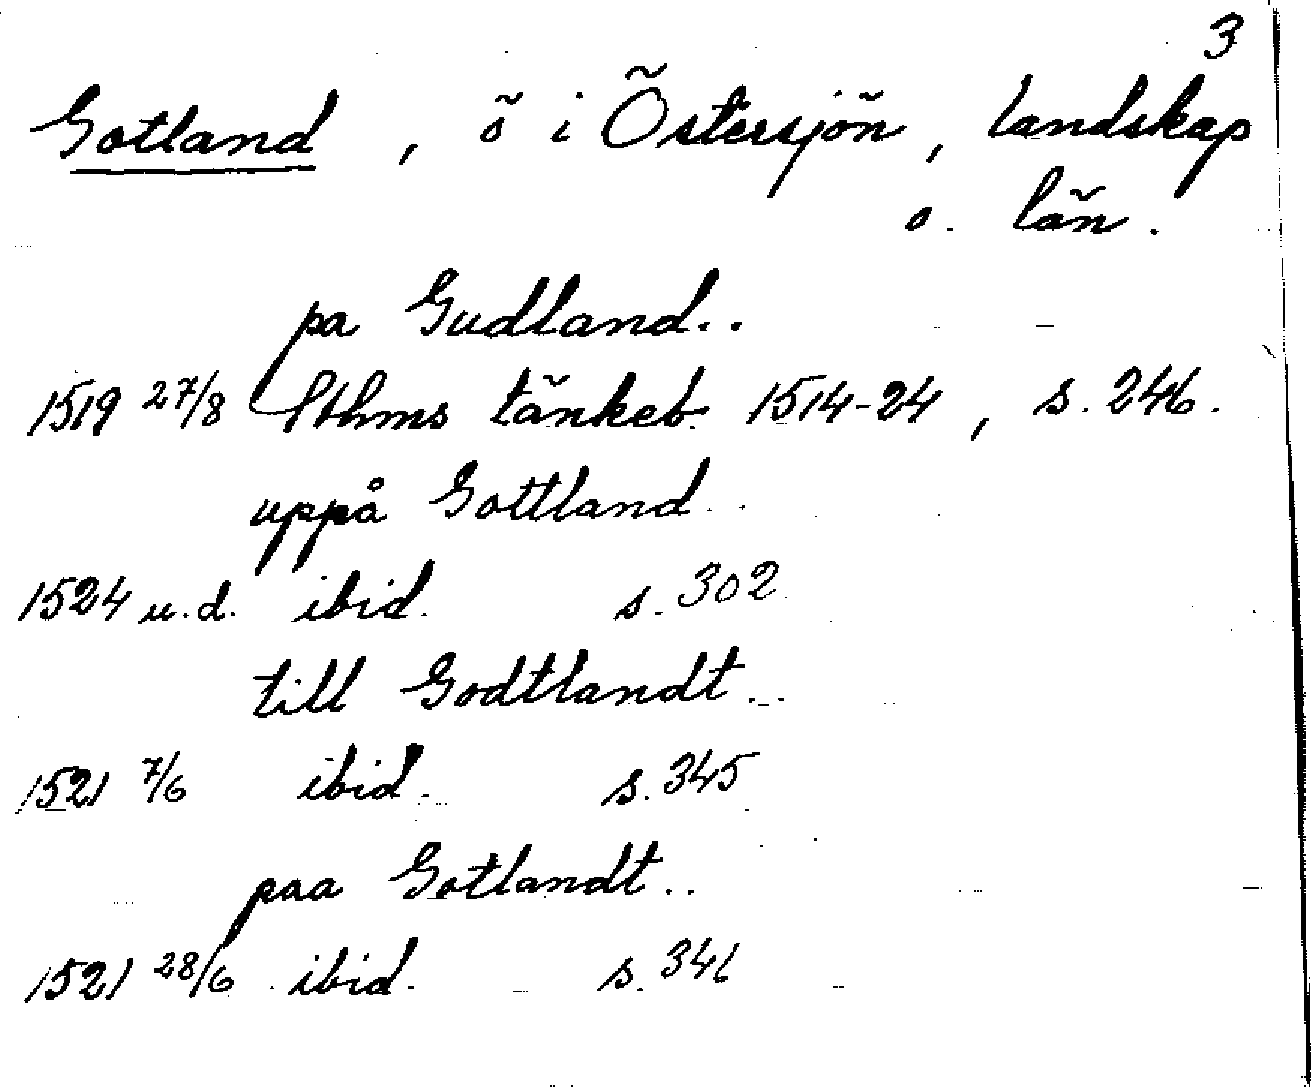 3
Gotland, ö i Östersjön, landskap
o. län.
pa Gudland..
1519 27/8 Sthms tänkeb. 1514-24, s. 246.
uppå Gottland..
1524 u.d. ibid. s. 302
till Godtlandt..
1521 7/6 ibid. s. 345
paa Gotlandt..
1521 28/6 ibid. s. 346